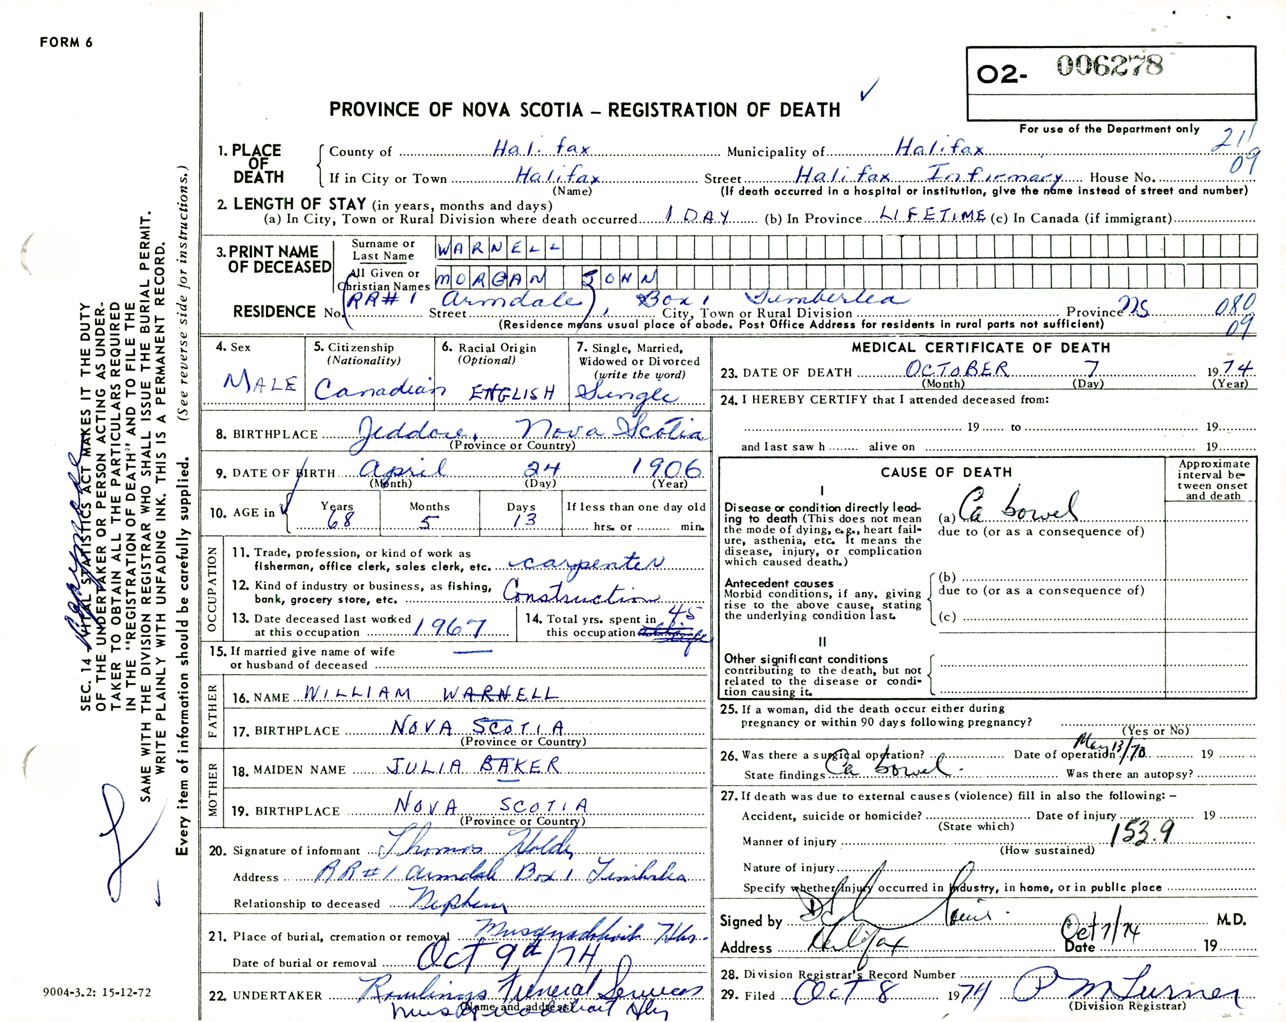 FORM 6
O2- 006278
PROVINCE OF NOVA SCOTIA – REGISTRATION OF DEATH
For use of the Department only
211
09
1. PLACE OF DEATH
County of Halifax Municipality of Halifax
If in City or Town Halifax Street Halifax Infirmary House No.
(Name) (If death occurred in a hospital or institution, give the name instead of street and number)
2. LENGTH OF STAY (in years, months and days)
(a) In City, Town or Rural Division where death occurred 1 DAY (b) In Province LIFETIME (c) In Canada (if immigrant)
3. PRINT NAME OF DECEASED
Surname or Last Name WARNELL
All Given or Christian Names MORGAN JOHN
RESIDENCE No. (RR#1 Armdale), Box 1 Timberlea NS 080
Street City, Town or Rural Division Province 09
(Residence means usual place of abode. Post Office Address for residents in rural parts not sufficient)
4. Sex
MALE
5. Citizenship
(Nationality)
Canadian
6. Racial Origin
(Optional)
ENGLISH
7. Single, Married,
Widowed or Divorced
(write the word)
Single
8. BIRTHPLACE Jeddore, Nova Scotia
(Province or Country)
9. DATE OF BIRTH April 24 1906
(Month) (Day) (Year)
10. AGE in Years Months Days If less than one day old
68 5 13 hrs. or min.
OCCUPATION
11. Trade, profession, or kind of work as
fisherman, office clerk, sales clerk, etc. carpenter
12. Kind of industry or business, as fishing,
bank, grocery store, etc. Construction
13. Date deceased last worked
at this occupation 1967
14. Total yrs. spent in 45
this occupation
15. If married give name of wife
or husband of deceased
FATHER
16. NAME WILLIAM WARNELL
17. BIRTHPLACE NOVA SCOTIA
(Province or Country)
MOTHER
18. MAIDEN NAME JULIA BAKER
19. BIRTHPLACE NOVA SCOTIA
(Province or Country)
20. Signature of informant Thomas
Address RR#1 Armdale Box 1 Timberlea
Relationship to deceased Nephew
21. Place of burial, cremation or removal Musquodoboit Hbr.
Date of burial or removal Oct 9th/74
22. UNDERTAKER Rawlings Funeral Services
(Name and address) Musquodoboit Hbr
MEDICAL CERTIFICATE OF DEATH
23. DATE OF DEATH OCTOBER 7 1974
(Month) (Day) (Year)
24. I HEREBY CERTIFY that I attended deceased from:
19 to 19
and last saw h alive on 19
CAUSE OF DEATH
Approximate interval between onset and death
I
Disease or condition directly lead-
ing to death (This does not mean
the mode of dying, e.g., heart fail-
ure, asthenia, etc. It means the
disease, injury, or complication
which caused death.)
(a) Ca bowel
due to (or as a consequence of)
Antecedent causes
Morbid conditions, if any, giving
rise to the above cause, stating
the underlying condition last.
(b)
due to (or as a consequence of)
(c)
II
Other significant conditions
contributing to the death, but not
related to the disease or condi-
tion causing it.
25. If a woman, did the death occur either during
pregnancy or within 90 days following pregnancy?
(Yes or No)
26. Was there a surgical operation? Date of operation May 13/70 19
State findings Ca bowel. Was there an autopsy?
27. If death was due to external causes (violence) fill in also the following: –
Accident, suicide or homicide? Date of injury 19
(State which)
Manner of injury 153.9
(How sustained)
Nature of injury
Specify whether injury occurred in industry, in home, or in public place
Signed by M.D.
Address Halifax Date Oct 7/74 19
28. Division Registrar's Record Number
29. Filed Oct 8 1974 P M Turner
(Division Registrar)
SEC. 14 – VITAL STATISTICS ACT MAKES IT THE DUTY
OF THE UNDERTAKER OR PERSON ACTING AS UNDER-
TAKER TO OBTAIN ALL THE PARTICULARS REQUIRED
IN THE "REGISTRATION OF DEATH" AND TO FILE THE
SAME WITH THE DIVISION REGISTRAR WHO SHALL ISSUE THE BURIAL PERMIT.
WRITE PLAINLY WITH UNFADING INK. THIS IS A PERMANENT RECORD.
Every item of information should be carefully supplied. (See reverse side for instructions.)
9004-3.2: 15-12-72